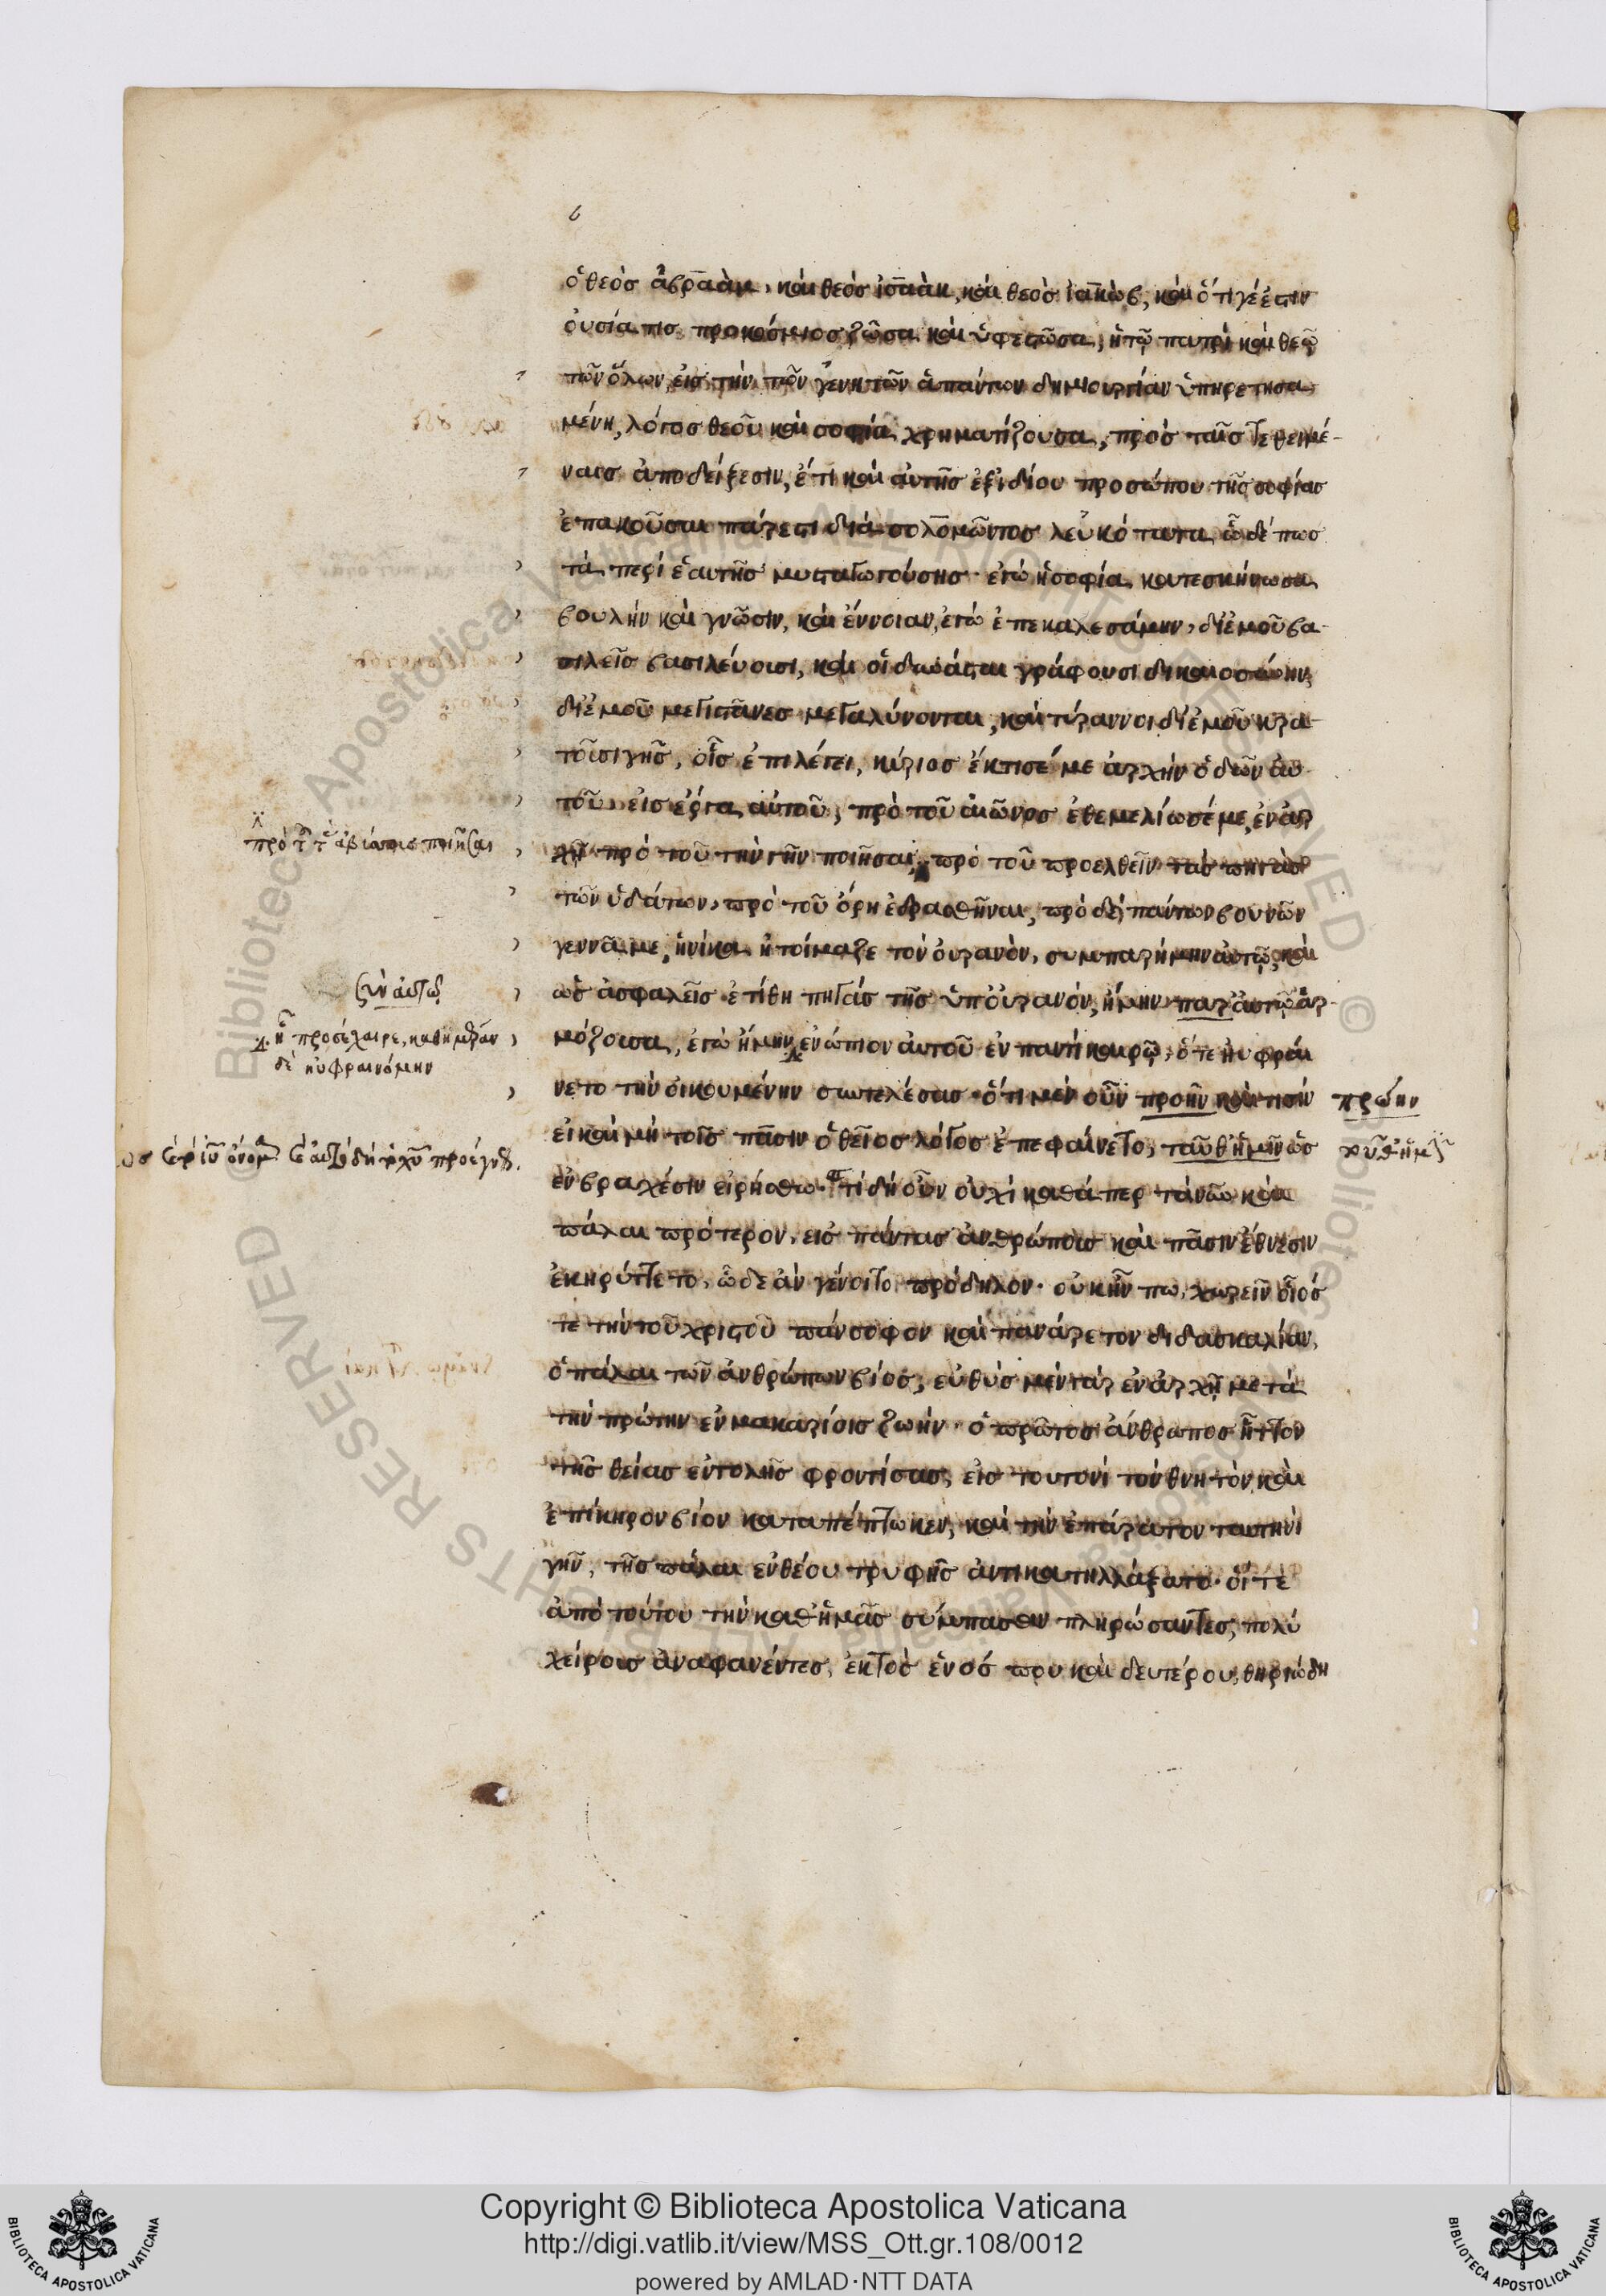 6
ὁ θεὸσ ἀβραὰμ, καὶ θεὸσ ἰσαὰκ, καὶ θεὸσ ἰακὼβ, καὶ ὅτι γέ ἐστιν
οὐσία τισ προκόσμιοσ ζῶσα καὶ ὑφεστῶσα, ἡ τῷ πατρὶ καὶ θεῷ
τῶν ὅλων εἰσ τὴν τῶν γενητῶν ἁπάντων δημιουργίαν ὑπηρετησα
μένη, λόγοσ θεοῦ καὶ σοφία χρηματίζουσα, πρὸσ ταῖσ τεθειμέ-
ναισ ἀποδείξεσιν, ἔτι καὶ αὐτῆσ ἐξ ἰδίου προσώπου τῆσ σοφίασ
ἐπακοῦσαι πάρεστι διὰ σολομῶντοσ λευκότατα ὧδέ πωσ
τὰ περὶ ἑαυτῆσ μυσταγωγούσησ· ἐγὼ ἡ σοφία κατεσκήνωσα
βουλὴν καὶ γνῶσιν, καὶ ἔννοιαν, ἐγὼ ἐπεκαλεσάμην, δι' ἐμοῦ βα-
σιλεῖσ βασιλεύουσι, καὶ οἱ δυνάσται γράφουσι δικαιοσύνην,
δι' ἐμοῦ μεγιστᾶνεσ μεγαλύνονται, καὶ τύραννοι δι' ἐμοῦ κρα-
τοῦσι γῆσ, οἷσ ἐπιλέγει, κύριοσ ἔκτισέ με ἀρχὴν ὁδῶν αὐ-
τοῦ εἰσ ἔργα αὐτοῦ, πρὸ τοῦ αἰῶνοσ ἐθεμελίωσέ με, ἐν ἀρ
χῇ πρὸ τοῦ τὴν γῆν ποιῆσαι, πρὸ τοῦ προελθεῖν τὰσ πηγὰσ
τῶν ὑδάτων, πρὸ τοῦ ὄρη ἑδρασθῆναι, πρὸ δὲ πάντων βουνῶν
γεννᾶ με, ἡνίκα ἡτοίμαζε τὸν οὐρανὸν, συμπαρήμην αὐτῷ, καὶ
ὡσ ἀσφαλεῖσ ἐτίθη πηγὰσ τῆσ ὑπ' οὐρανόν, ἤμην παρ' αὐτῷ ἁρ-
μόζουσα, ἐγὼ ἤμην ἐνώπιον αὐτοῦ ἐν παντὶ καιρῷ, ὅτε ηὐφραί
νετο τὴν οἰκουμένην συντελέσασ· ὅτι μὲν οὖν προῆν καὶ τισὶν
εἰ καὶ μὴ τοῖσ πᾶσιν ὁ θεῖοσ λόγοσ ἐπεφαίνετο, ταῦθ' ἡμῖν ὡσ
ἐν βραχέσιν εἰρήσθω· τί δὴ οὖν οὐχὶ καθάπερ τὰ νῦν καὶ
πάλαι πρότερον, εἰσ πάντασ ἀνθρώπουσ καὶ πᾶσιν ἔθνεσιν
ἐκηρύττετο, ὧδε ἂν γένοιτο πρόδηλον· οὐκ ἦν πω χωρεῖν οἷόσ
τε τὴν τοῦ χριστοῦ πάνσοφον καὶ πανάρετον διδασκαλίαν,
ὁ πάλαι τῶν ἀνθρώπων βίοσ, εὐθὺσ μὲν γὰρ ἐν ἀρχῇ μετὰ
τὴν πρώτην ἐν μακαρίοισ ζωὴν· ὁ πρῶτοσ ἄνθρωποσ ἧττον
τῆσ θείασ ἐντολῆσ φροντίσασ, εἰσ τουτονὶ τὸν θνητὸν καὶ
ἐπίκηρον βίον καταπέπτωκεν, καὶ τὴν ἐπάρατον ταυτηνὶ
γῆν, τῆσ πάλαι ἐνθέου τρυφῆσ ἀντικατηλλάξατο· οἵ τε
ἀπὸ τούτου τὴν καθ' ἡμᾶσ σύμπασαν πληρώσαντεσ, πολὺ
χείρουσ ἀναφανέντεσ, ἐκτὸσ ἑνόσ που καὶ δευτέρου, θηριώδη
πρὸ τοῦ τὰσ ἀβύσσουσ ποιῆσαι
σὺν αὐτῷ
ᾗ προσέχαιρε, καθ' ἡμέραν
δὲ ηὐφραινόμην
πρώην
Copyright © Biblioteca Apostolica Vaticana
http://digi.vatlib.it/view/MSS_Ott.gr.108/0012
powered by AMLAD·NTT DATA